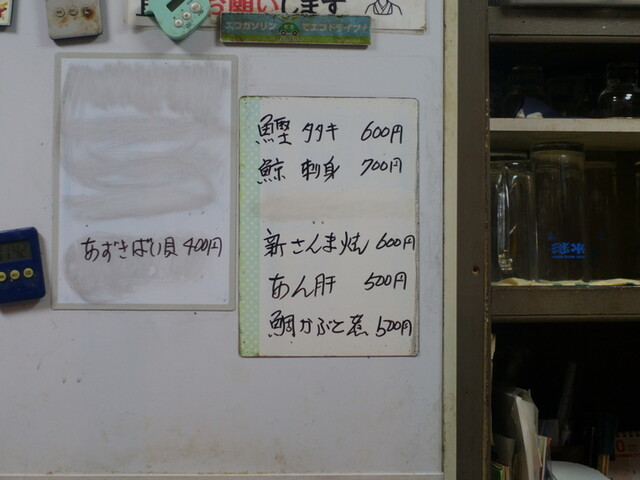 お願いします
エコガソリン でエコドライブ!
あずきばい貝 400円
鰹 タタキ 600円
鯨 刺身 700円
新さんま焼 600円
あん肝 500円
鯛かぶと煮 500円